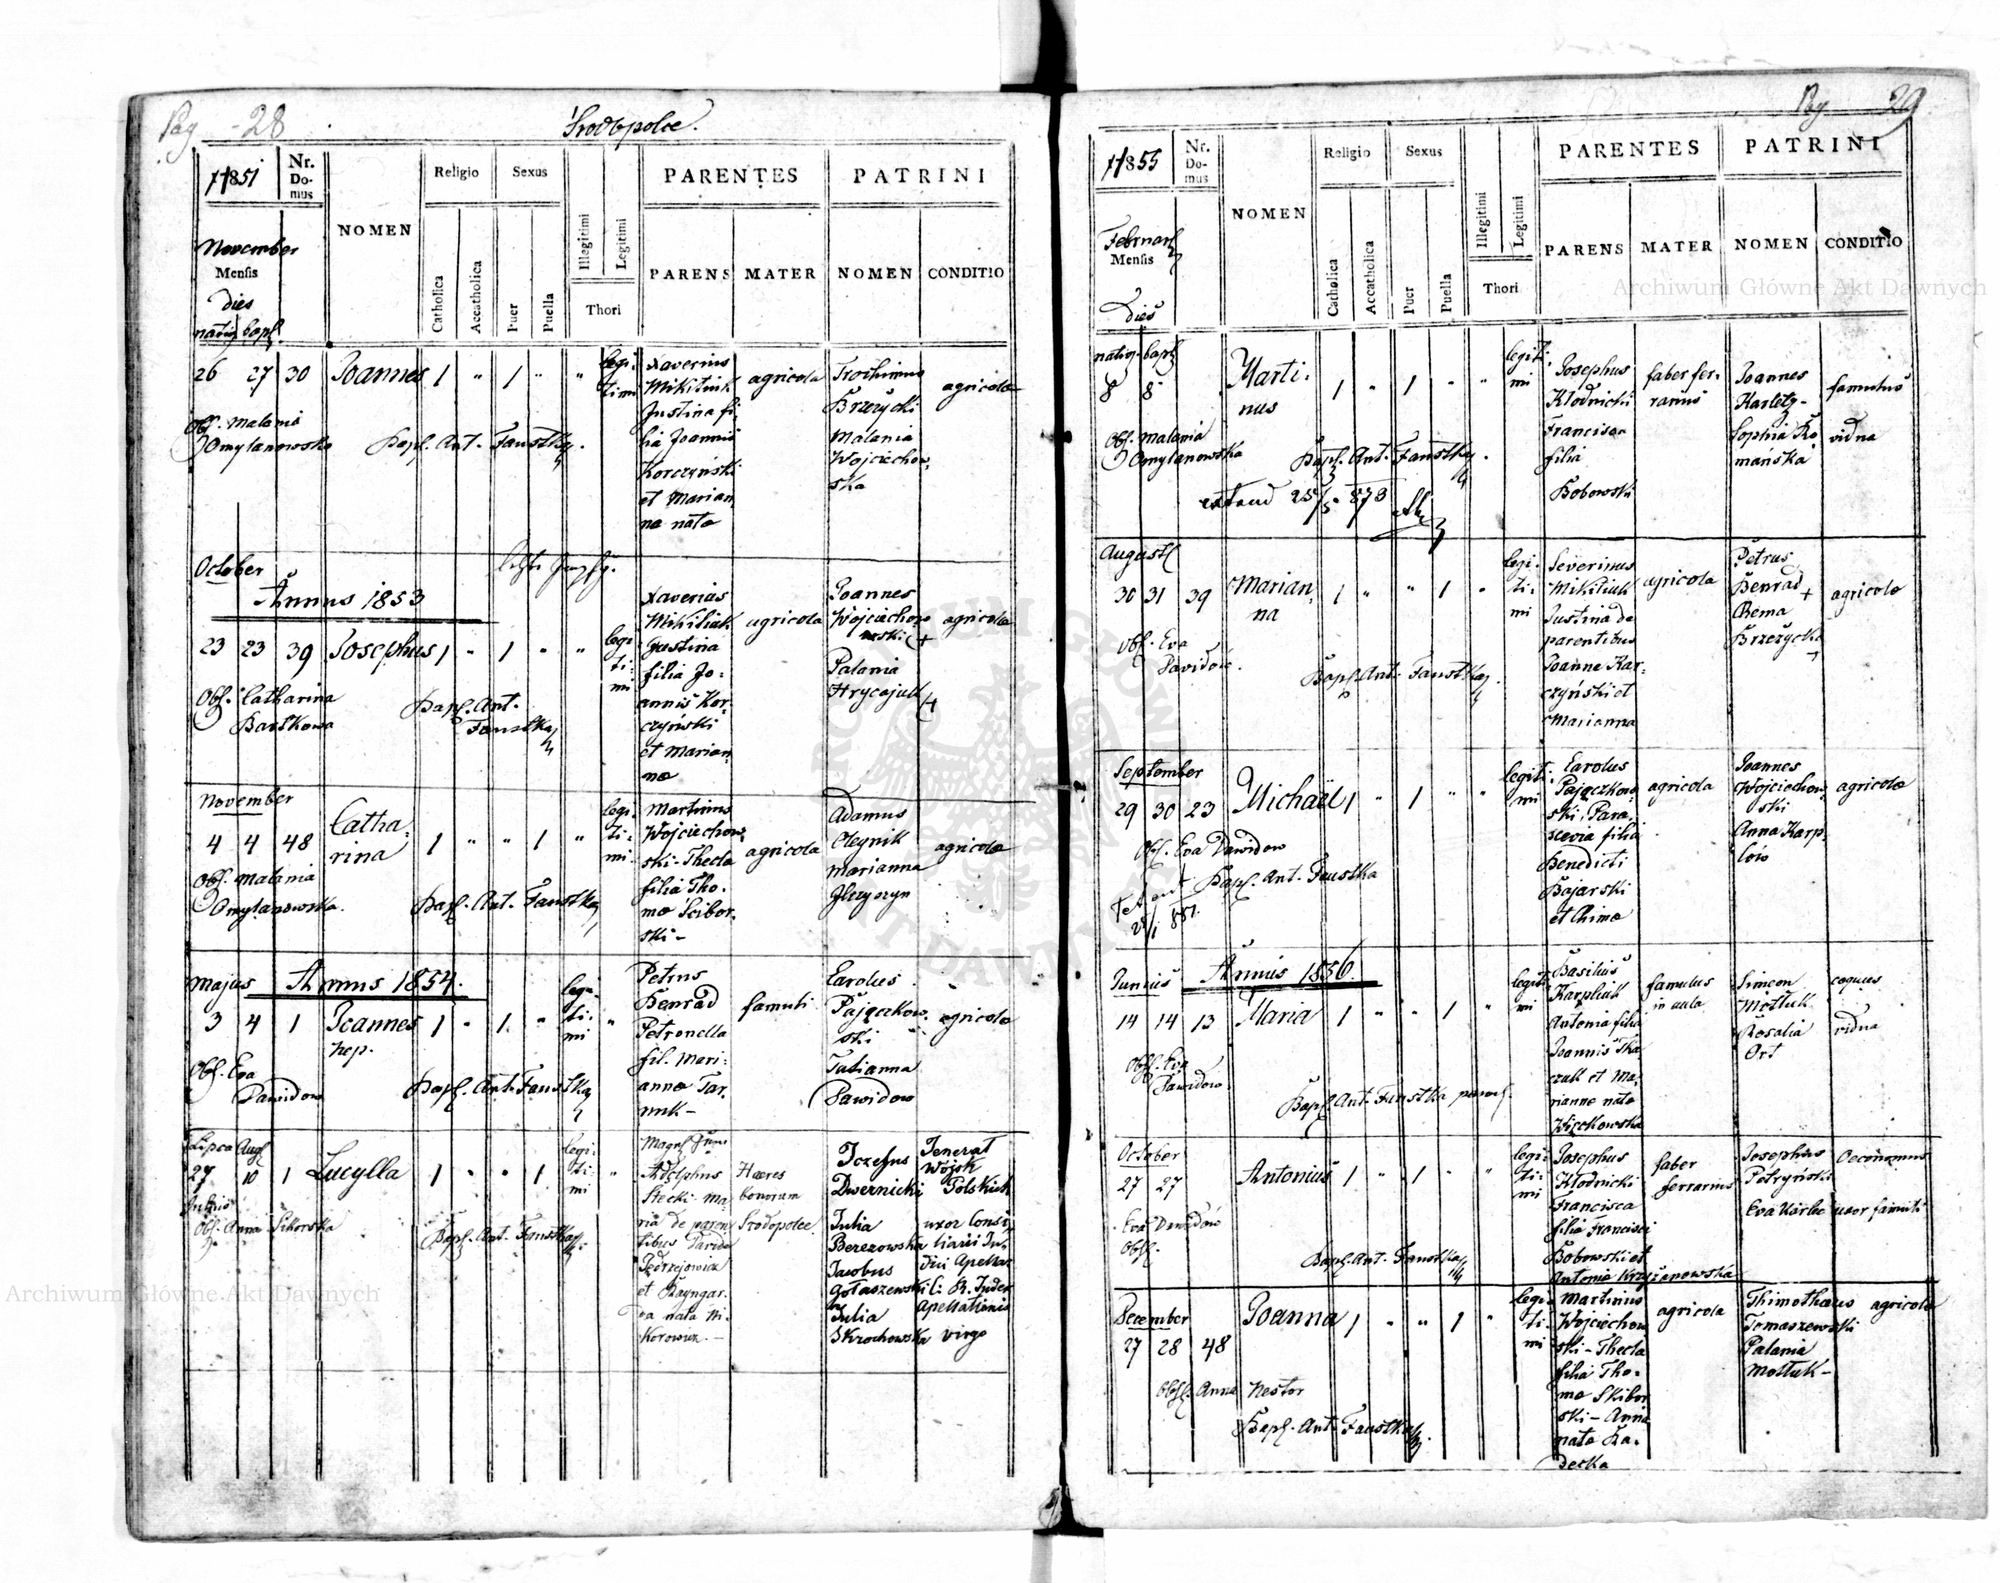 Pag - 28
Srodopolce.
1851
Nr. Domus
NOMEN
Religio
Sexus
PARENTES
PATRINI
November
Mensis
dies
natiq bapt.
Catholica
Accatholica
Puer
Puella
Illegitimi
Legitimi
Thori
PARENS
MATER
NOMEN
CONDITIO
26 27 30 Joannes 1 " 1 " " legitimi
Xaverius
Mikitiuk
Justina fi
lia Joannis
Korczyński
et Marian
na nata
agricola
Trochimus
Brzezycki
Malania
Wojciechow
ska
agricola
Obs. Malania
Omylanowska
Bapt. Ant. Faustka
October
Annus 1853
23 23 39 Josephus 1 " 1 " " legi
ti
mi
Xaverius
Mikitiuk
Justina
filia Jo:
annis Kor:
czyński
et Marian
na
agricola
Joannes
Wojciechow
ski +
Palania
Hrycajuk
agricola
Obs. Catharina
Bartkowa
Bapt. Ant.
Faustka
November
4 4 48 Catha:
rina 1 " " 1 " legi
ti:
mi.
Martinus
Wojciechow
ski - Thecla
filia Tho:
ma Scibor
ski -
agricola
Adamus
Oleynik
Marianna
agricola
Obs. Malania
Omylanowska.
Bapt. Ant. Faustka
Majus Annus 1854.
3 4 1 Joannes 1 " 1 " legi
ti:
mi "
Nep.
Petrus
Benrad
Petronella
fil. Mari:
anna Tar
nuk -
famuli
Carolus
Pajączkow
ski
Tatianna
Dawidow
agricola
Obs. Eva
Dawidow
Bapt. Ant. Faustka
Lipca Aug
27 10 1 Lucylla 1 " " 1 legi
ti:
mi "
Julius
Obs. Anna Sikorska
Bapt. Ant. Faustka
Adolphus
Stecki - Ma
ria de paren
tibus David
Jędrzejowicz
et Rayngar
da nata Mi
korowicz. -
Hæres
bonorum
Srodopolce
Jozefus
Dwernicki
Julia
Berezowska
Jacobus
Gołaszewski
Julia
Skrochowska
Jenerał
Wojsk
Polskich
uxor Consi
liarii Ju
dici Apellat
C. R. Judex
Apellationis
virgo
Pag 29
1855
Nr. Domus
NOMEN
Religio
Sexus
PARENTES
PATRINI
Februar
Mensis
Dies
natiq. bapt
Catholica
Accatholica
Puer
Puella
Illegitimi
Legitimi
Thori
PARENS
MATER
NOMEN
CONDITIO
8 8 Marti:
nus 1 " 1 " " legiti:
mi
Josephus
Kłodnicki
Francisca
filia
Bobowski
faber fer:
rarius
Joannes
Karletz -
Sophia Ro
mańska
famulus
vidua
Obs. Malania
Omylanowska
Bapt. Ant. Faustka.
extrad 25/5 873
August
30 31 39 Marian
na 1 " " 1 " legi:
ti:
mi
Severinus
Mikitiuk
Justina de
parentibus
Joanne Kar:
czyński et
Marianna
agricola
Petrus
Benrad +
Bema
Brzezycka
agricola
Obs. Eva
Dawidow.
Bapt. Ant. Faustka
September
29 30 23 Michael 1 " 1 " " legiti:
mi
Carolus
Pajączkow
ski. Para
scevia filia
Benedicti
Bajarski
et Chima
agricola
Joannes
Wojciechow
ski
Anna Karp
low
agricola
Obs. Eva Dawidow
Bapt. Ant. Faustka
Junius Annus 1856
14 14 13 Maria 1 " " 1 " legiti
mi
Basilius
Karpliuk
Antonia filia
Joannis Tka
czuk et Ma
rianne nata
Więckowska
famulus
in aula
Simeon
Mołtuk
Rosalia
Ort
coquus
vidua
Obs. Eva
Dawidow
Bapt. Ant. Faustka paroch.
October
27 27 Antonius 1 " 1 " " legi:
ti:
mi
Josephus
Kłodnicki
Francisca
filia Francisci
Bobowski et
Antonia Krzyżanowska
faber
ferrarius
Josephus
Petryński
Eva Karlec
Oeconomus
uxor famuli
Eva Dawidow
Obs.
Bapt. Ant. Faustka
December
27 28 48 Joanna 1 " " 1 " legi
ti
mi
Martinus
Wojciechow
ski - Thecla
filia Tho:
ma Skibor
ski - Anna
nata Ra:
decka
agricola
Thimotheus
Tomaszewski
Palania
Mottuk -
agricola
Obst. Anna Nestor
Bapt. Ant. Faustka
Archiwum Główne Akt Dawnych
Archiwum Główne Akt Dawnych